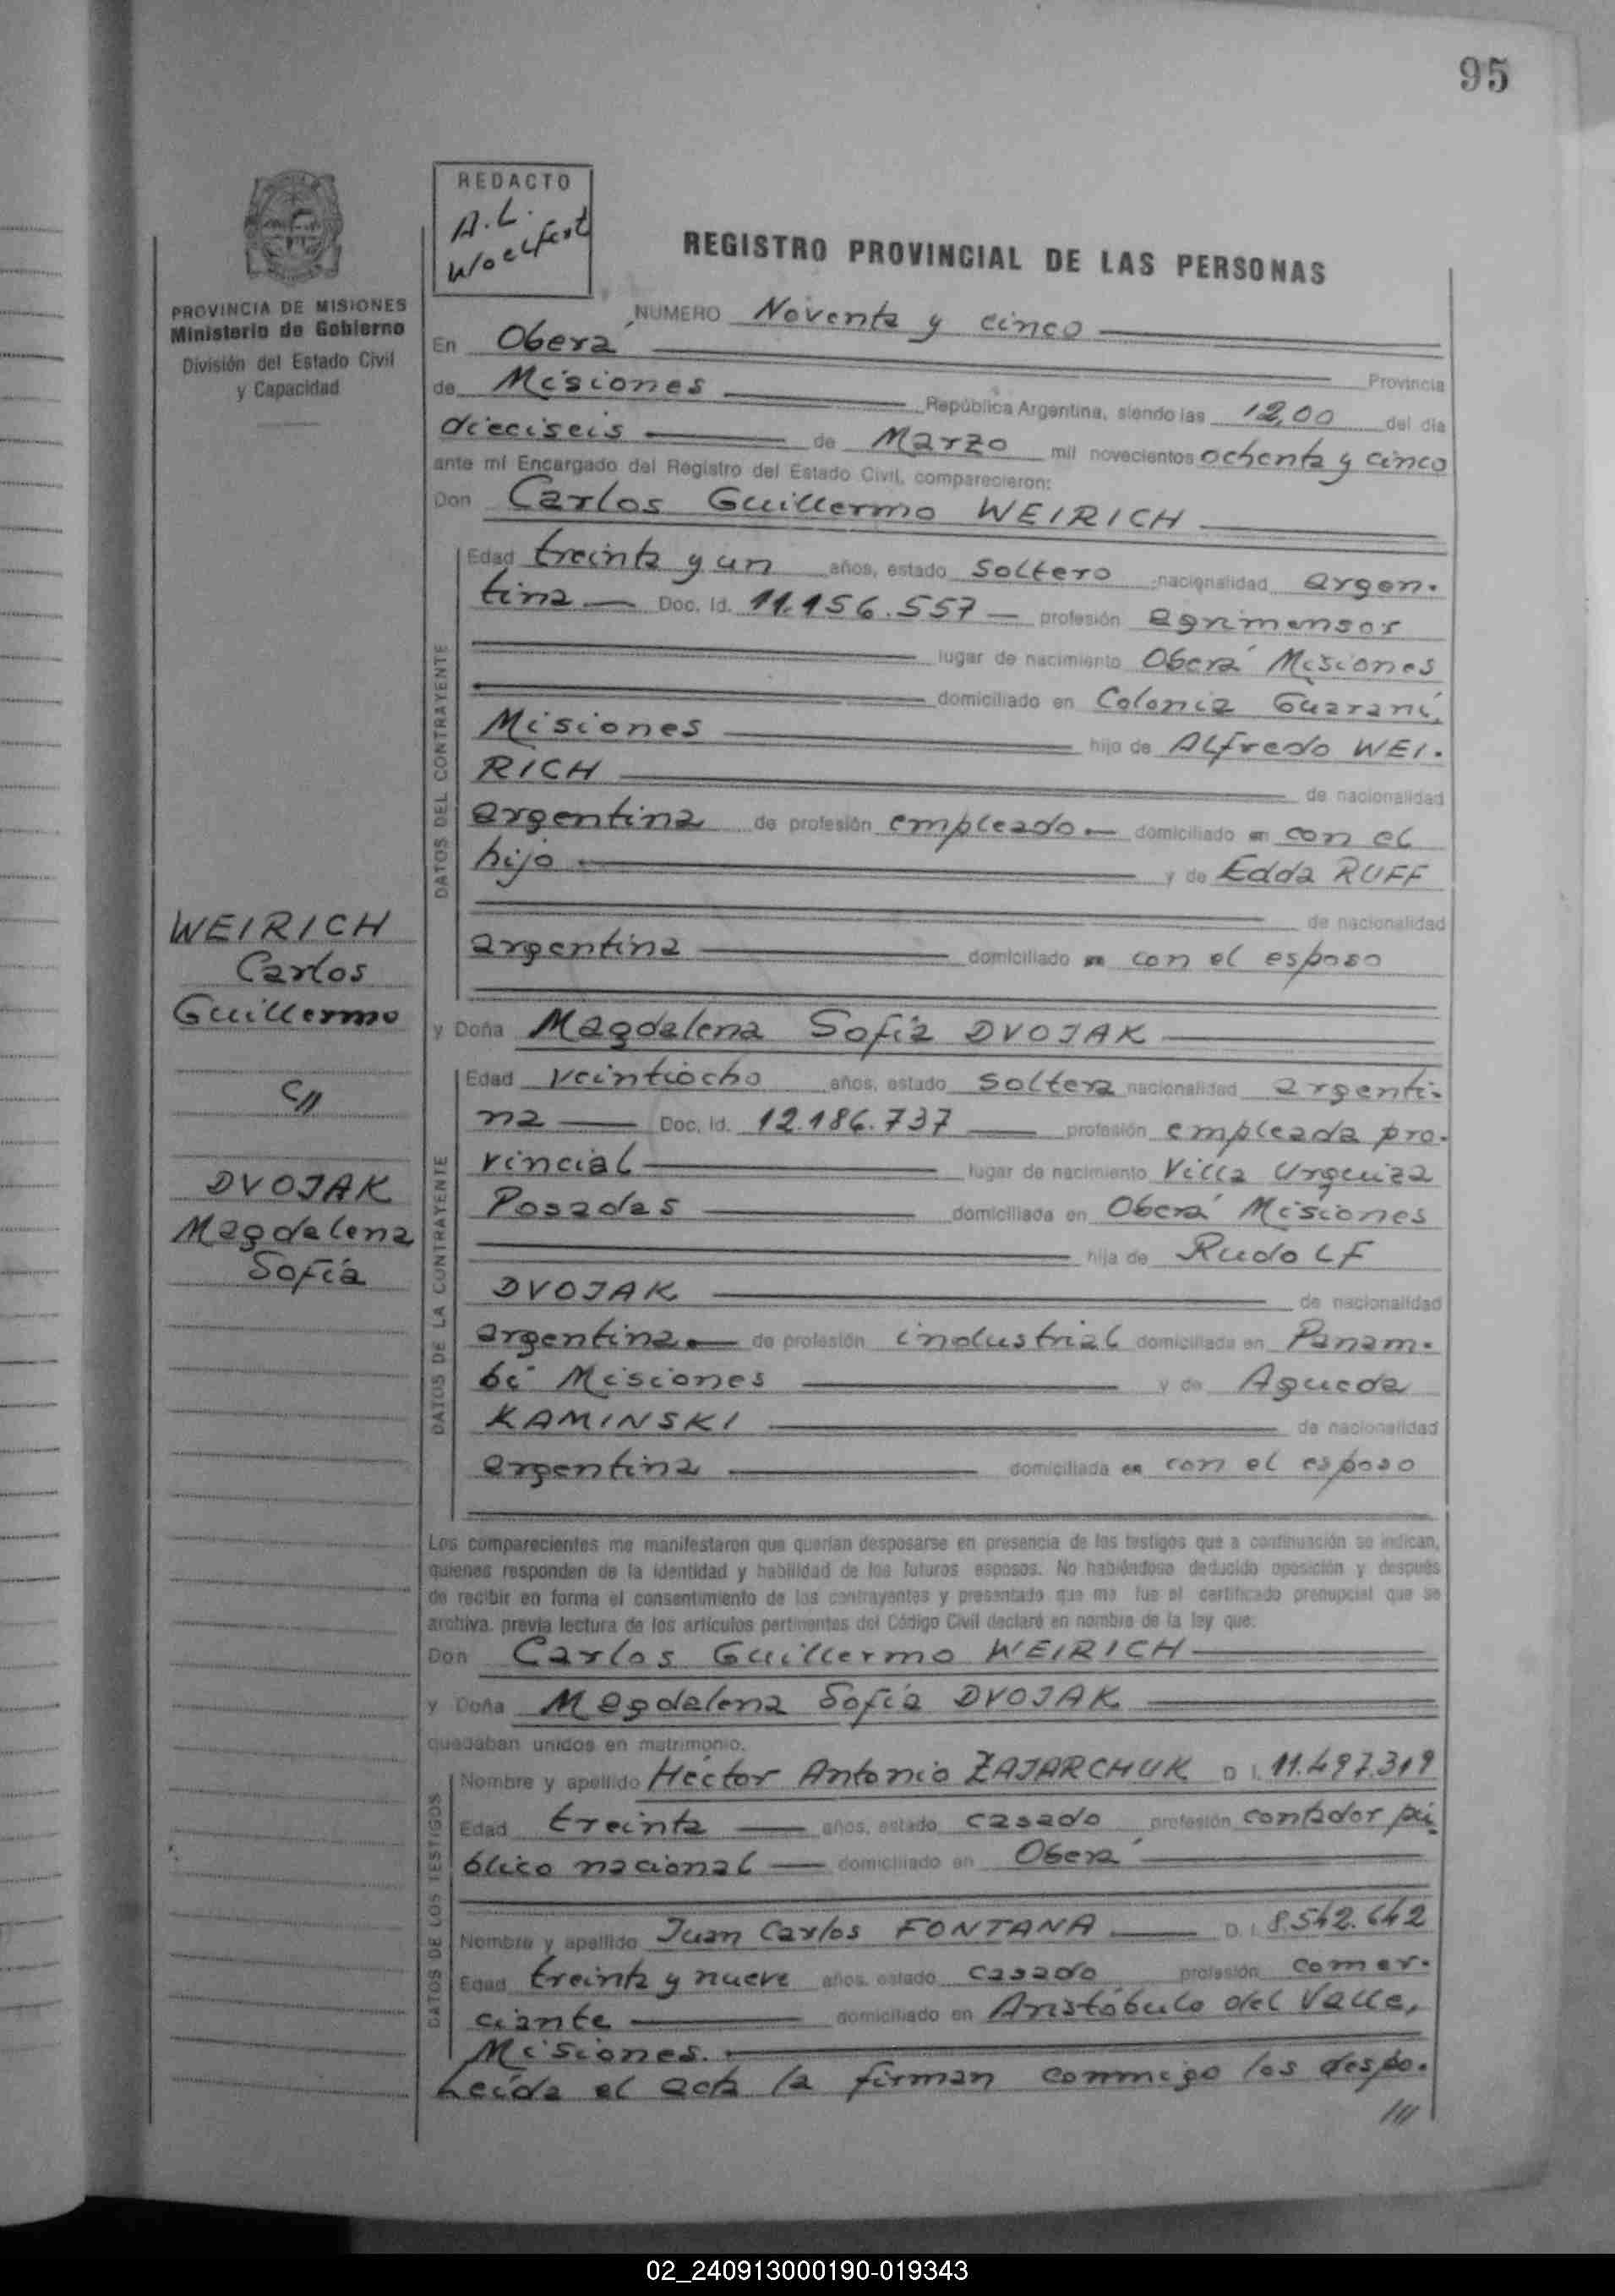 95
REDACTO
A.L.
Woelfert
REGISTRO PROVINCIAL DE LAS PERSONAS
PROVINCIA DE MISIONES
Ministerio de Gobierno
División del Estado Civil
y Capacidad
NUMERO Noventa y cinco
En Oberá Provincia
de Misiones República Argentina, siendo las 12,00 del día
dieciseis de Marzo mil novecientos ochenta y cinco
ante mí Encargado del Registro del Estado Civil, comparecieron:
Don Carlos Guillermo WEIRICH
DATOS DEL CONTRAYENTE
Edad treinta y un años, estado soltero nacionalidad argen-
tina Doc. Id. 11.156.557 profesión agrimensor
lugar de nacimiento Oberá Misiones
domiciliado en Colonia Guaraní,
Misiones hijo de Alfredo WEI-
RICH de nacionalidad
argentina de profesión empleado domiciliado en con el
hijo y de Edda RUFF
de nacionalidad
argentina domiciliado en con el esposo
WEIRICH
Carlos
Guillermo
c//
DVOJAK
Magdalena
Sofía
y Doña Magdalena Sofía DVOJAK
DATOS DE LA CONTRAYENTE
Edad veintiocho años, estado soltera nacionalidad argenti-
na Doc. Id. 12.186.737 profesión empleada pro-
vincial lugar de nacimiento Villa Urquiza
Posadas domiciliada en Oberá Misiones
hija de Rudolf
DVOJAK de nacionalidad
argentina de profesión industrial domiciliada en Panam-
bí Misiones y de Agueda
KAMINSKI de nacionalidad
argentina domiciliada en con el esposo
Los comparecientes me manifestaron que querían desposarse en presencia de los testigos que a continuación se indican,
quienes responden de la identidad y habilidad de los futuros esposos. No habiéndose deducido oposición y después
de recibir en forma el consentimiento de los contrayentes y presentado que me fue el certificado prenupcial que se
archiva, previa lectura de los artículos pertinentes del Código Civil declaré en nombre de la ley que:
Don Carlos Guillermo WEIRICH
y Doña Magdalena Sofía DVOJAK
quedaban unidos en matrimonio.
DATOS DE LOS TESTIGOS
Nombre y apellido Héctor Antonio ZAJARCHUK D.I. 11.497.319
Edad treinta años, estado casado profesión contador pú-
blico nacional domiciliado en Oberá
Nombre y apellido Juan Carlos FONTANA D.I. 8.542.642
Edad treinta y nueve años, estado casado profesión comer-
ciante domiciliado en Aristóbulo del Valle,
Misiones.
Leída el acta la firman conmigo los despo-
///
02_240913000190-019343